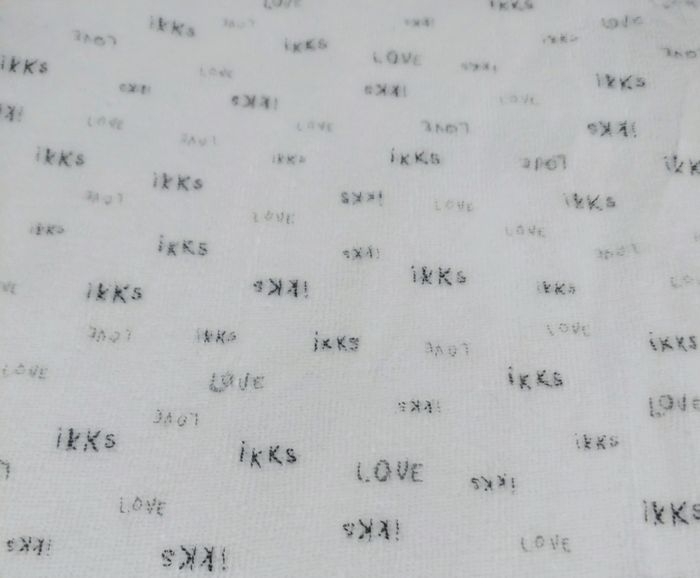 LOVE ikks
ikks LOVE ikks LOVE
LOVE ikks ikks
ikks LOVE LOVE ikks LOVE
ikks ikks ikks LOVE ikks
LOVE LOVE LOVE LOVE ikks
ikks ikks ikks LOVE ikk
LOVE ikks ikks LOVE ikks
ikks LOVE LOVE
ikks ikks LOVE
VE ikks ikks ikks ikks LO
LOVE ikks ikks LOVE LOVE ikks
LOVE LOVE ikks
LOVE ikks LOVE
ikks ikks ikks
LOVE ikks
LOVE ikks
ikks ikks ikks LOVE